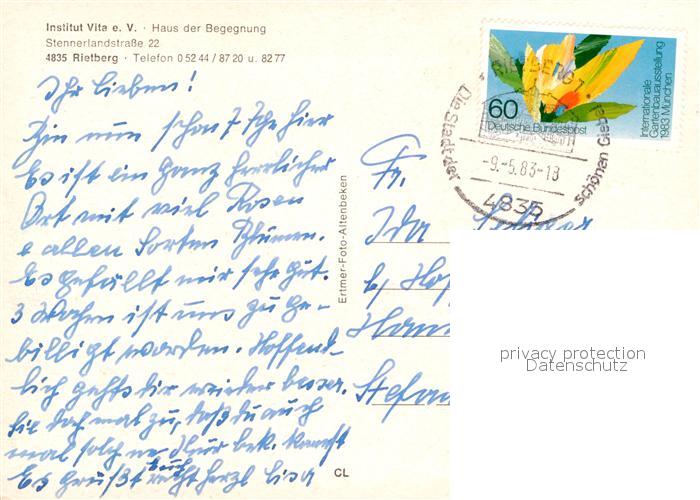 Institut Vita e. V. · Haus der Begegnung
Stennerlandstraße 22
4835 Rietberg · Telefon 0 52 44 / 87 20 u. 82 77
Ihr Lieben!
Bin nun schon 7 Tge hier
Es ist ein ganz herrlicher
Ort mit viel Rosen
e allen Sorten Blumen.
Es gefällt mir sehr gut.
3 Wochen ist uns zu ge-
billigt worden. Hoffend-
lich gehts dir wieder besser.
Sie doch mal zu, daß du auch
mal solch ne Kur bek. kannst
Es grüßt euch recht herzl Lisa
Ertmer-Foto-Altenbeken
CL
Fr.
Ida
b/ Hof
Stefan
60
Deutsche Bundespost
Internationale
Gartenbauausstellung
1983 München
RIETBERG 1
Die Stadt der
schönen Giebel
-9.-5.83-18
4835
privacy protection
Datenschutz